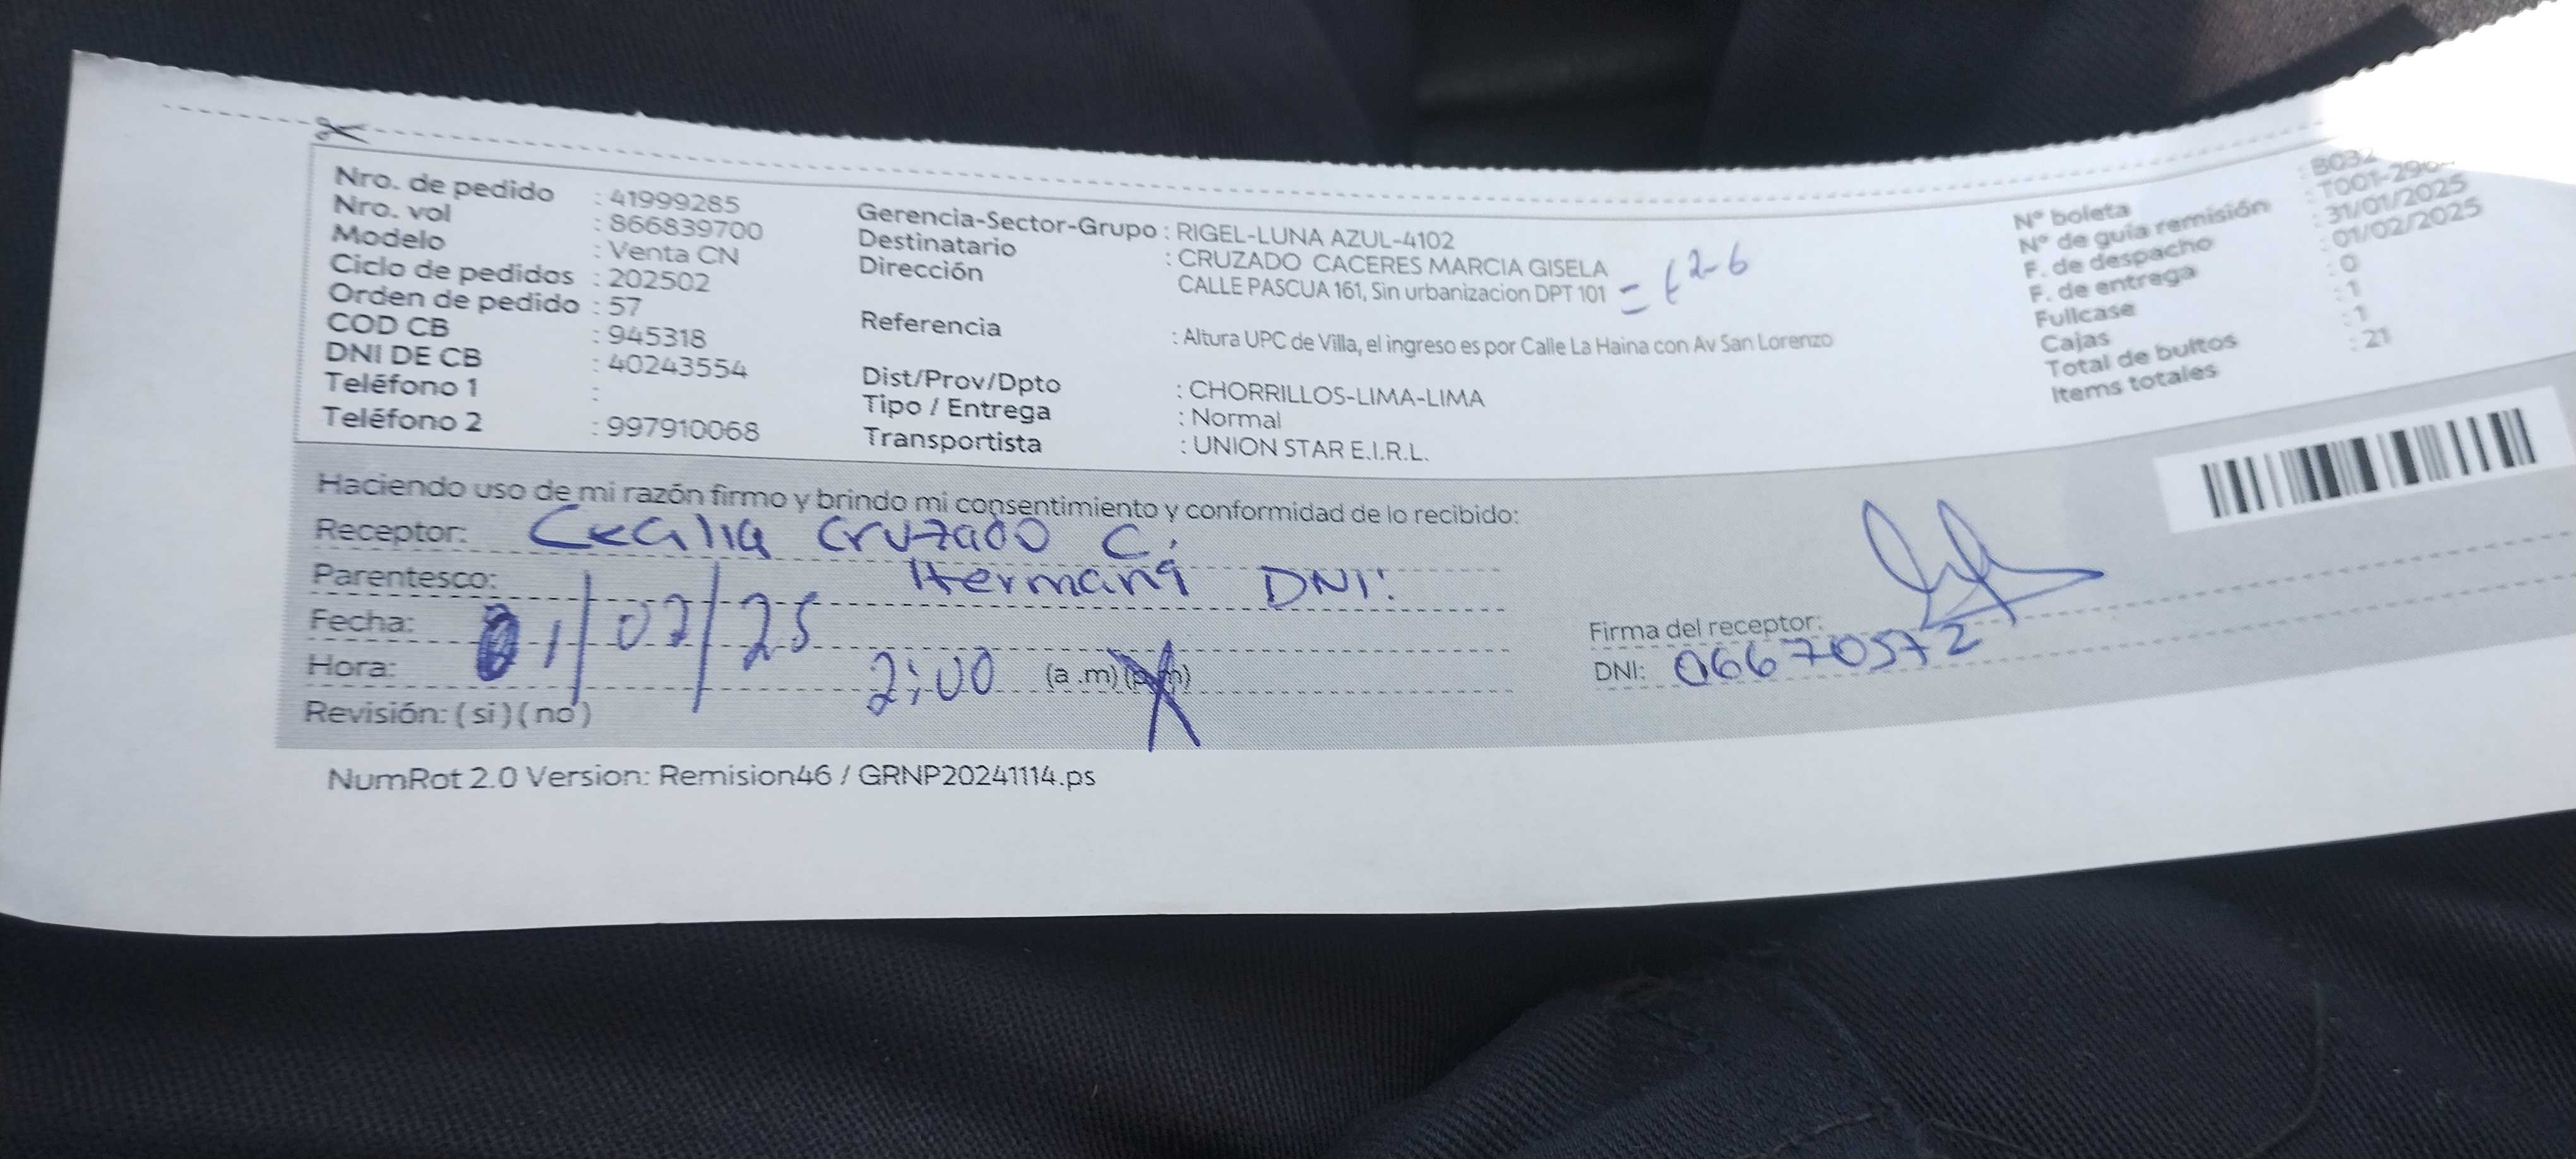 Nro. de pedido : 41999285
Nro. vol : 866839700
Modelo : Venta CN
Ciclo de pedidos : 202502
Orden de pedido : 57
COD CB : 945318
DNI DE CB : 40243554
Teléfono 1 :
Teléfono 2 : 997910068
Gerencia-Sector-Grupo : RIGEL-LUNA AZUL-4102
Destinatario : CRUZADO CACERES MARCIA GISELA
Dirección CALLE PASCUA 161, Sin urbanizacion DPT 101
Referencia : Altura UPC de Villa, el ingreso es por Calle La Haina con Av San Lorenzo
Dist/Prov/Dpto : CHORRILLOS-LIMA-LIMA
Tipo / Entrega : Normal
Transportista : UNION STAR E.I.R.L.
N° boleta : B032
N° de guía remisión : T001-290
F. de despacho : 31/01/2025
F. de entrega : 01/02/2025
Fullcase : 0
Cajas : 1
Total de bultos : 1
Items totales : 21
Haciendo uso de mi razón firmo y brindo mi consentimiento y conformidad de lo recibido:
Receptor: Cecilia Cruzado C.
Parentesco: Hermana DNI:
Fecha: 01/02/25
Hora: 2:00 (a .m)(p.m)
Revisión: ( si ) ( no )
Firma del receptor:
DNI: 06670572
NumRot 2.0 Version: Remision46 / GRNP20241114.ps